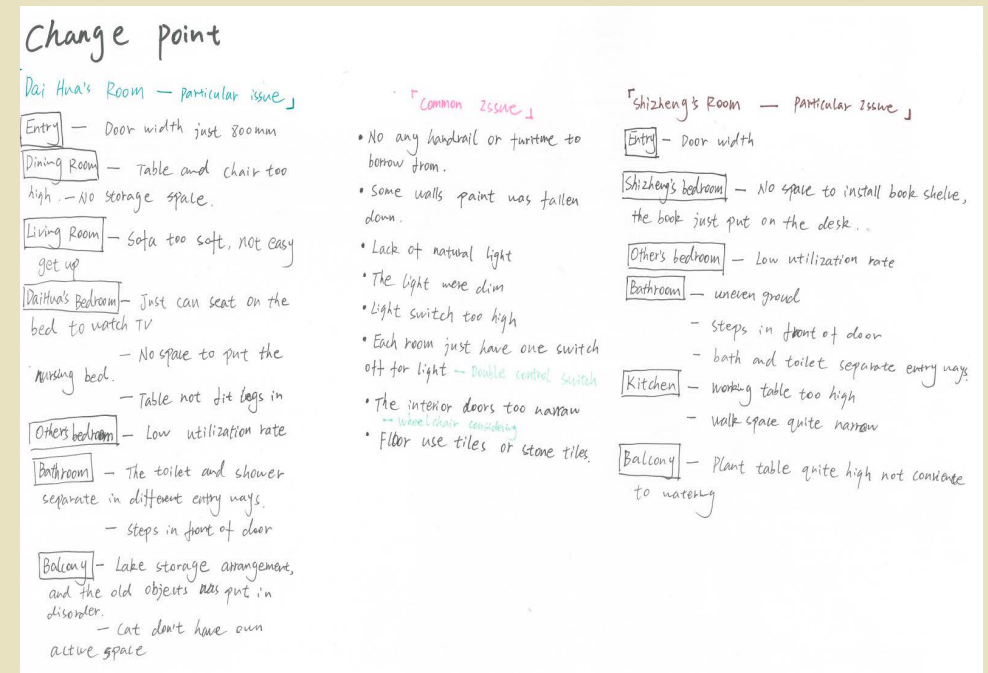 Change point
Dai Hua's Room — particular issue」
Entry — Door width just 800mm
Dining Room — Table and chair too
high. — No storage space.
Living Room — Sofa too soft, not easy
get up
DaiHua's Bedroom — Just can seat on the
bed to watch TV
— No space to put the
nursing bed.
— Table not fit legs in
Others bedroom — Low utilization rate
Bathroom — The toilet and shower
separate in different entry ways.
— steps in front of door
Balcony — Lake storage arrangement,
and the old objects was put in
disorder.
— Cat don't have own
active space
「Common Issue」
• No any handrail or furitme to
borrow from.
• Some walls paint was fallen
down.
• Lack of natural light
• The light were dim
• Light switch too high
• Each room just have one switch
off for light — Double control switch
• The interior doors too narraw
— wheelchair considing
• Floor use tiles or stone tiles.
「Shizheng's Room — Particular Issue」
Entry — Door width
Shizheng's bedroom — No space to install book shelve,
the book just put on the desk..
Other's bedroom — Low utilization rate
Bathroom — uneven groud
— steps in front of door
— bath and toilet separate entry ways.
Kitchen — working table too high
— walk space quite narrow
Balcony — Plant table quite high not conviente
to watering